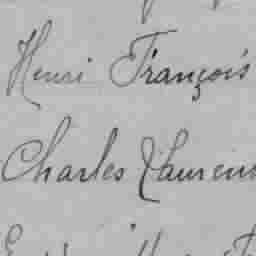 Henri François
Charles Lauren